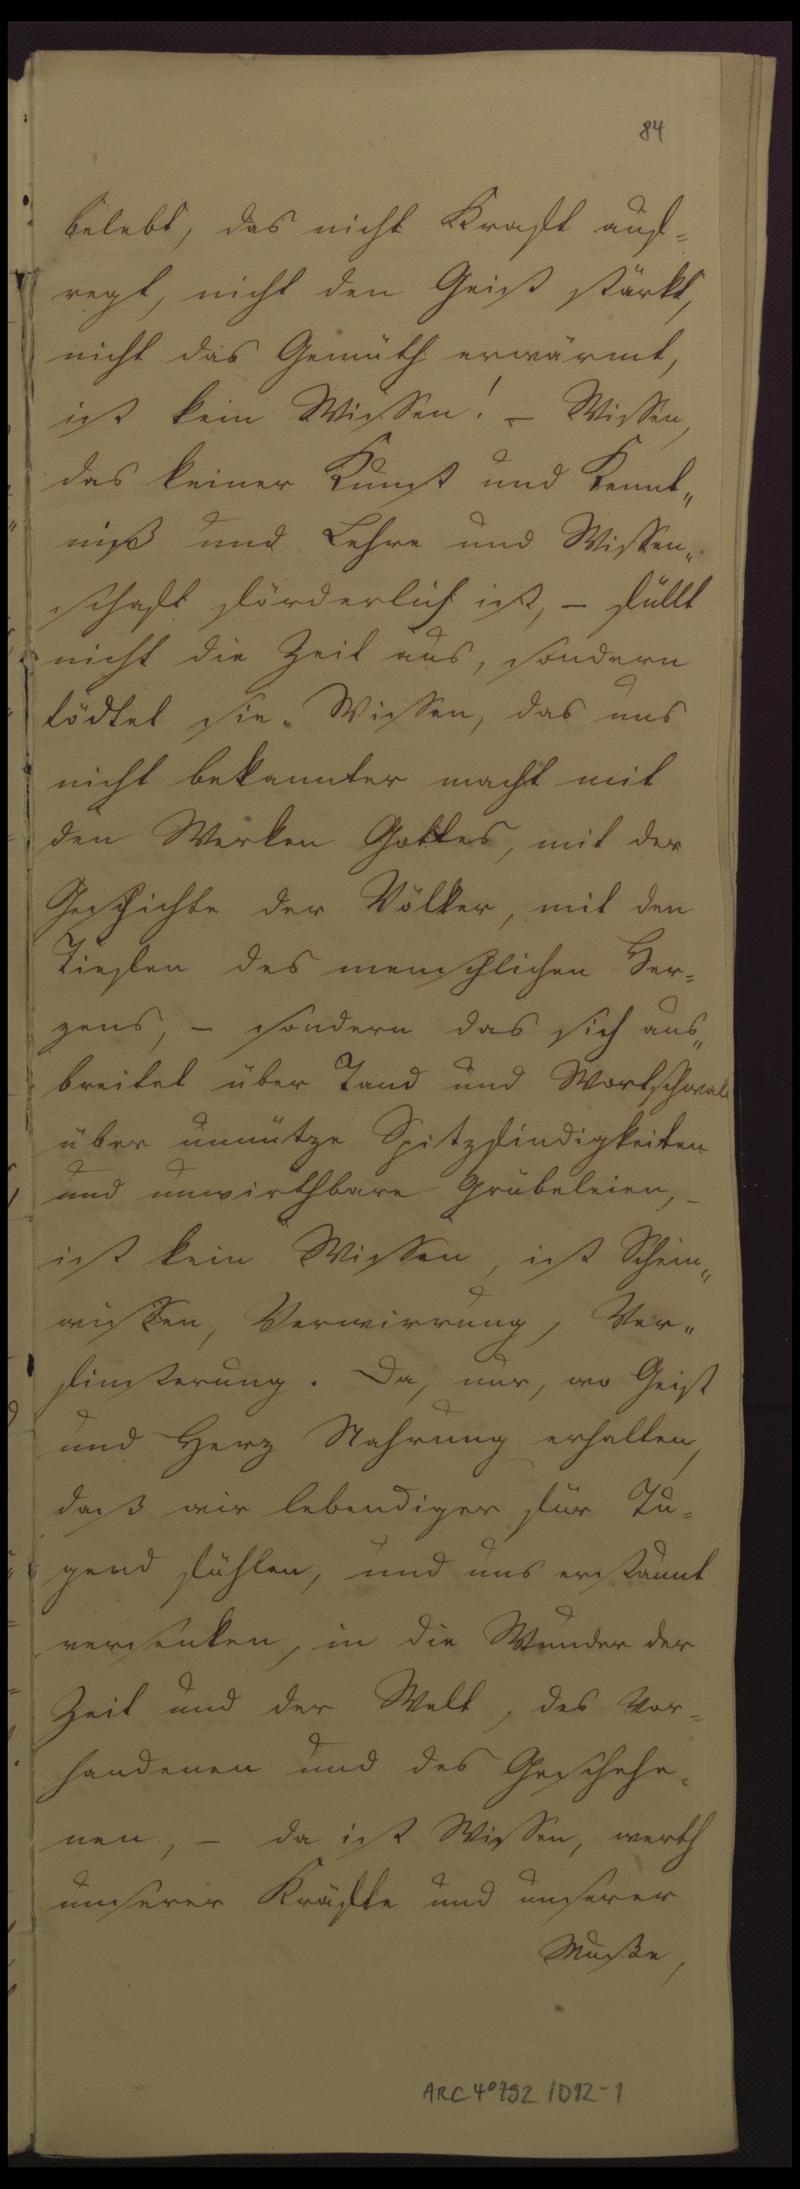 84
belebt, das nicht Kraft auf=
regt, nicht den Geist stärkt,
nicht das Gemüth erwärmt,
ist kein Wissen! – Wissen,
das keiner Kunst und Kennt„
niß und Lehre und Wissen„
schaft förderlich ist, – füllt
nicht die Zeit aus, sondern
tödtet sie. Wissen, das uns
nicht bekannter macht mit
den Werken Gottes, mit der
Geschichte der Völker, mit den
Tiefen des menschlichen Her=
zens, – sondern das sich aus„
breitet über Tand und Wortschwall
über unnütze Spitzfindigkeiten
und unwirthbare Grübeleien, –
ist kein Wissen, ist Schein„
wissen, Verwirrung, Ver„
finsterung. Da, nur, wo Geist
und Herz Nahrung erhalten,
daß wir lebendiger für Tu=
gend fühlen, und uns erstaunt
versenken, in die Wunder der
Zeit und der Welt, des Vor=
handenen und des Geschehe=
nen, – da ist Wissen, werth
unserer Kräfte und unserer
Muße,
ARC 4° 792 / D12-1